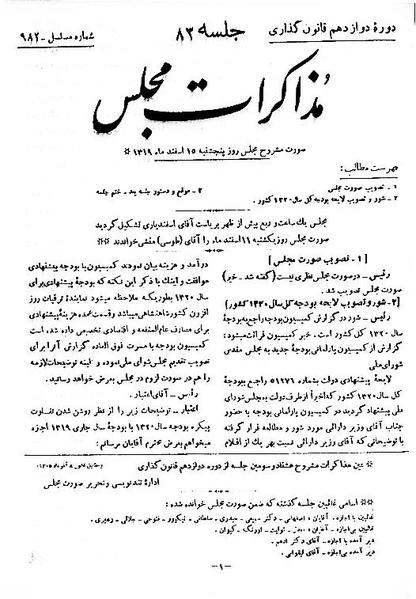 دورهٔ دوازدهم قانون گذاری
جلسه ۸۳
شماره مسلسل - ۹۸۲
مذاکرات مجلس
صورت مشروح مجلس روز پنجشنبه ۱۵ اسفند ماه ۱۳۱۹
فهرست مطالب:
۱ - تصویب صورت مجلس
۲ - شور و تصویب لایحه بودجه کل سال ۱۳۲۰ کشور.
۳ - موقع و دستور جلسه بعد - ختم جلسه
مجلس یک ساعت و ربع پیش از ظهر بریاست آقای اسفندیاری تشکیل گردید
صورت مجلس روز یکشنبه ۱۱ اسفند ماه را آقای (طوسی) منشی خواندند
[ ۱ - تصویب صورت مجلس ]
رئیس - در صورت مجلس نظری نیست (گفته شد - خیر)
صورت مجلس تصویب شد.
[۲ - شور و تصویب لایحه بودجه کل سال ۱۳۲۰ کشور]
رئیس - شور در گزارش کمیسیون بودجه راجع به بودجهٔ
سال ۱۳۲۰ کل کشور است. خبر کمیسیون قرائت میشود:
گزارش از کمیسیون پارلمانی بودجهٔ جدید به مجلس مقدس
شورای ملی
لایحهٔ پیشنهادی دولت بشماره ۵۱۲۷۱ راجع ببودجهٔ
سال ۱۳۲۰ کل کشور که اخیراً از طرف دولت به مجلس شورای
ملی پیشنهاد گردید در کمیسیون پارلمانی بودجه با حضور
جناب آقای وزیر دارائی مورد شور و مطالعه قرار گرفته
با توضیحاتی که آقای وزیر دارائی نسبت بهر یک از اقلام
درآمد و هزینه بیان نمودند کمیسیون با بودجه پیشنهادی
موافقت و اینک با ذکر این نکته که بودجهٔ پیشنهادی برای
سال ۱۳۲۰ بطوریکه ملاحظه میشود نمایندهٔ ترقیات روز
افزون کشور شاهنشاهی میباشد وقسمت عمده هزینهٔ پیشنهادی
برای مصارف عام المنفعه و اقتصادی تخصیص داده شده است
کمیسیون بودجه با مسرت فوق العاده گزارش آنرا برای
تصویب تقدیم مجلس شورای ملی نموده و البته توضیحات لازمه
را هم در صورت لزوم در مجلس بعرض خواهد رسانید.
رئیس - آقای اعتبار.
اعتبار - توضیحات زیر را از نظر روشن شدن تفاوت
پیکره بودجه سال ۱۳۲۰ با بودجهٔ سال جاری ۱۳۱۹ اجازه
میخواهم بعرض محترم آقایان برسانم:
عین مذاکرات مشروح هشتاد و سومین جلسه از دوره دوازدهم قانون گذاری
ادارهٔ تندنویسی و تحریر صورت مجلس
اسامی غائبین جلسه گذشته که ضمن صورت مجلس خوانده شده:
دیر آمده با اجازه - آقای دکتر ادهم.
دیر آمده بی‌اجازه - آقای
-۱-